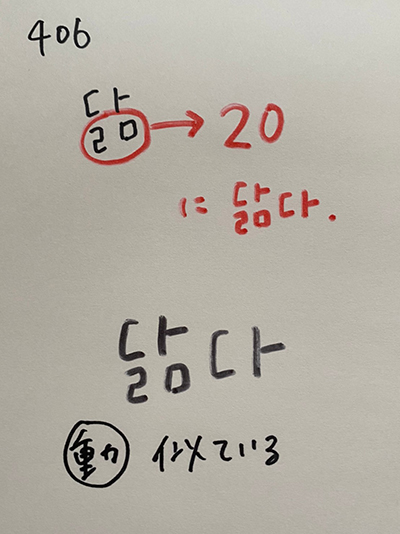 406
닮 → 20
に 닮다.
닮다
動 似ている